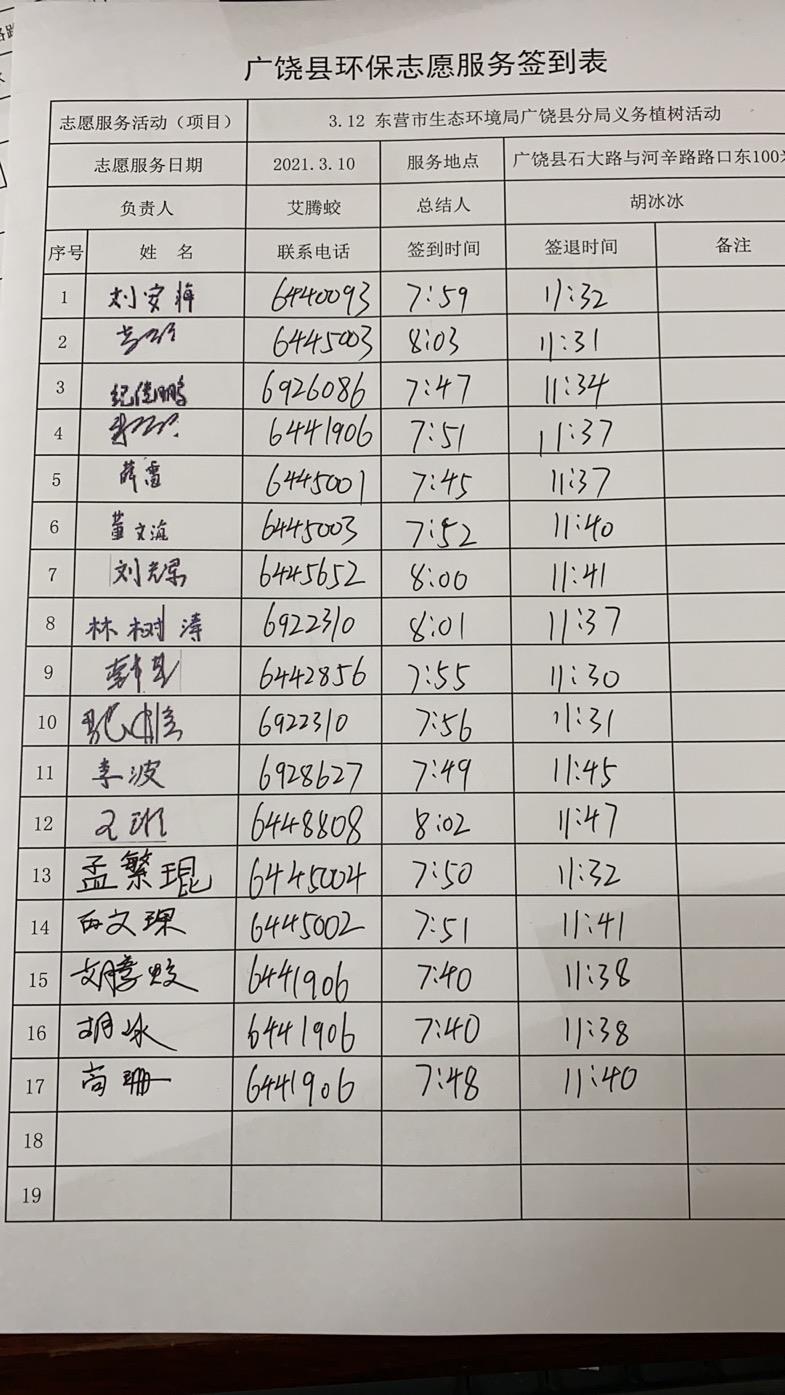 广饶县环保志愿服务签到表
志愿服务活动（项目） 3.12 东营市生态环境局广饶县分局义务植树活动
志愿服务日期 2021.3.10 服务地点 广饶县石大路与河辛路路口东100
负责人 艾腾蛟 总结人 胡冰冰
序号 姓 名 联系电话 签到时间 签退时间 备注
1 刘安 6440093 7:59 11:32
2 6445003 8:03 11:31
3 纪 鹏 6926086 7:47 11:34
4 6441906 7:51 11:37
5 薛雷 6445001 7:45 11:37
6 董文 6445003 7:52 11:40
7 刘 6445652 8:00 11:41
8 林树涛 6922310 8:01 11:37
9 6442856 7:55 11:30
10 6922310 7:56 11:31
11 李波 6928627 7:49 11:45
12 6448808 8:02 11:47
13 孟繁琨 6445004 7:50 11:32
14 文 6445002 7:51 11:41
15 艾腾蛟 6441906 7:40 11:38
16 胡冰 6441906 7:40 11:38
17 尚珊 6441906 7:48 11:40
18
19